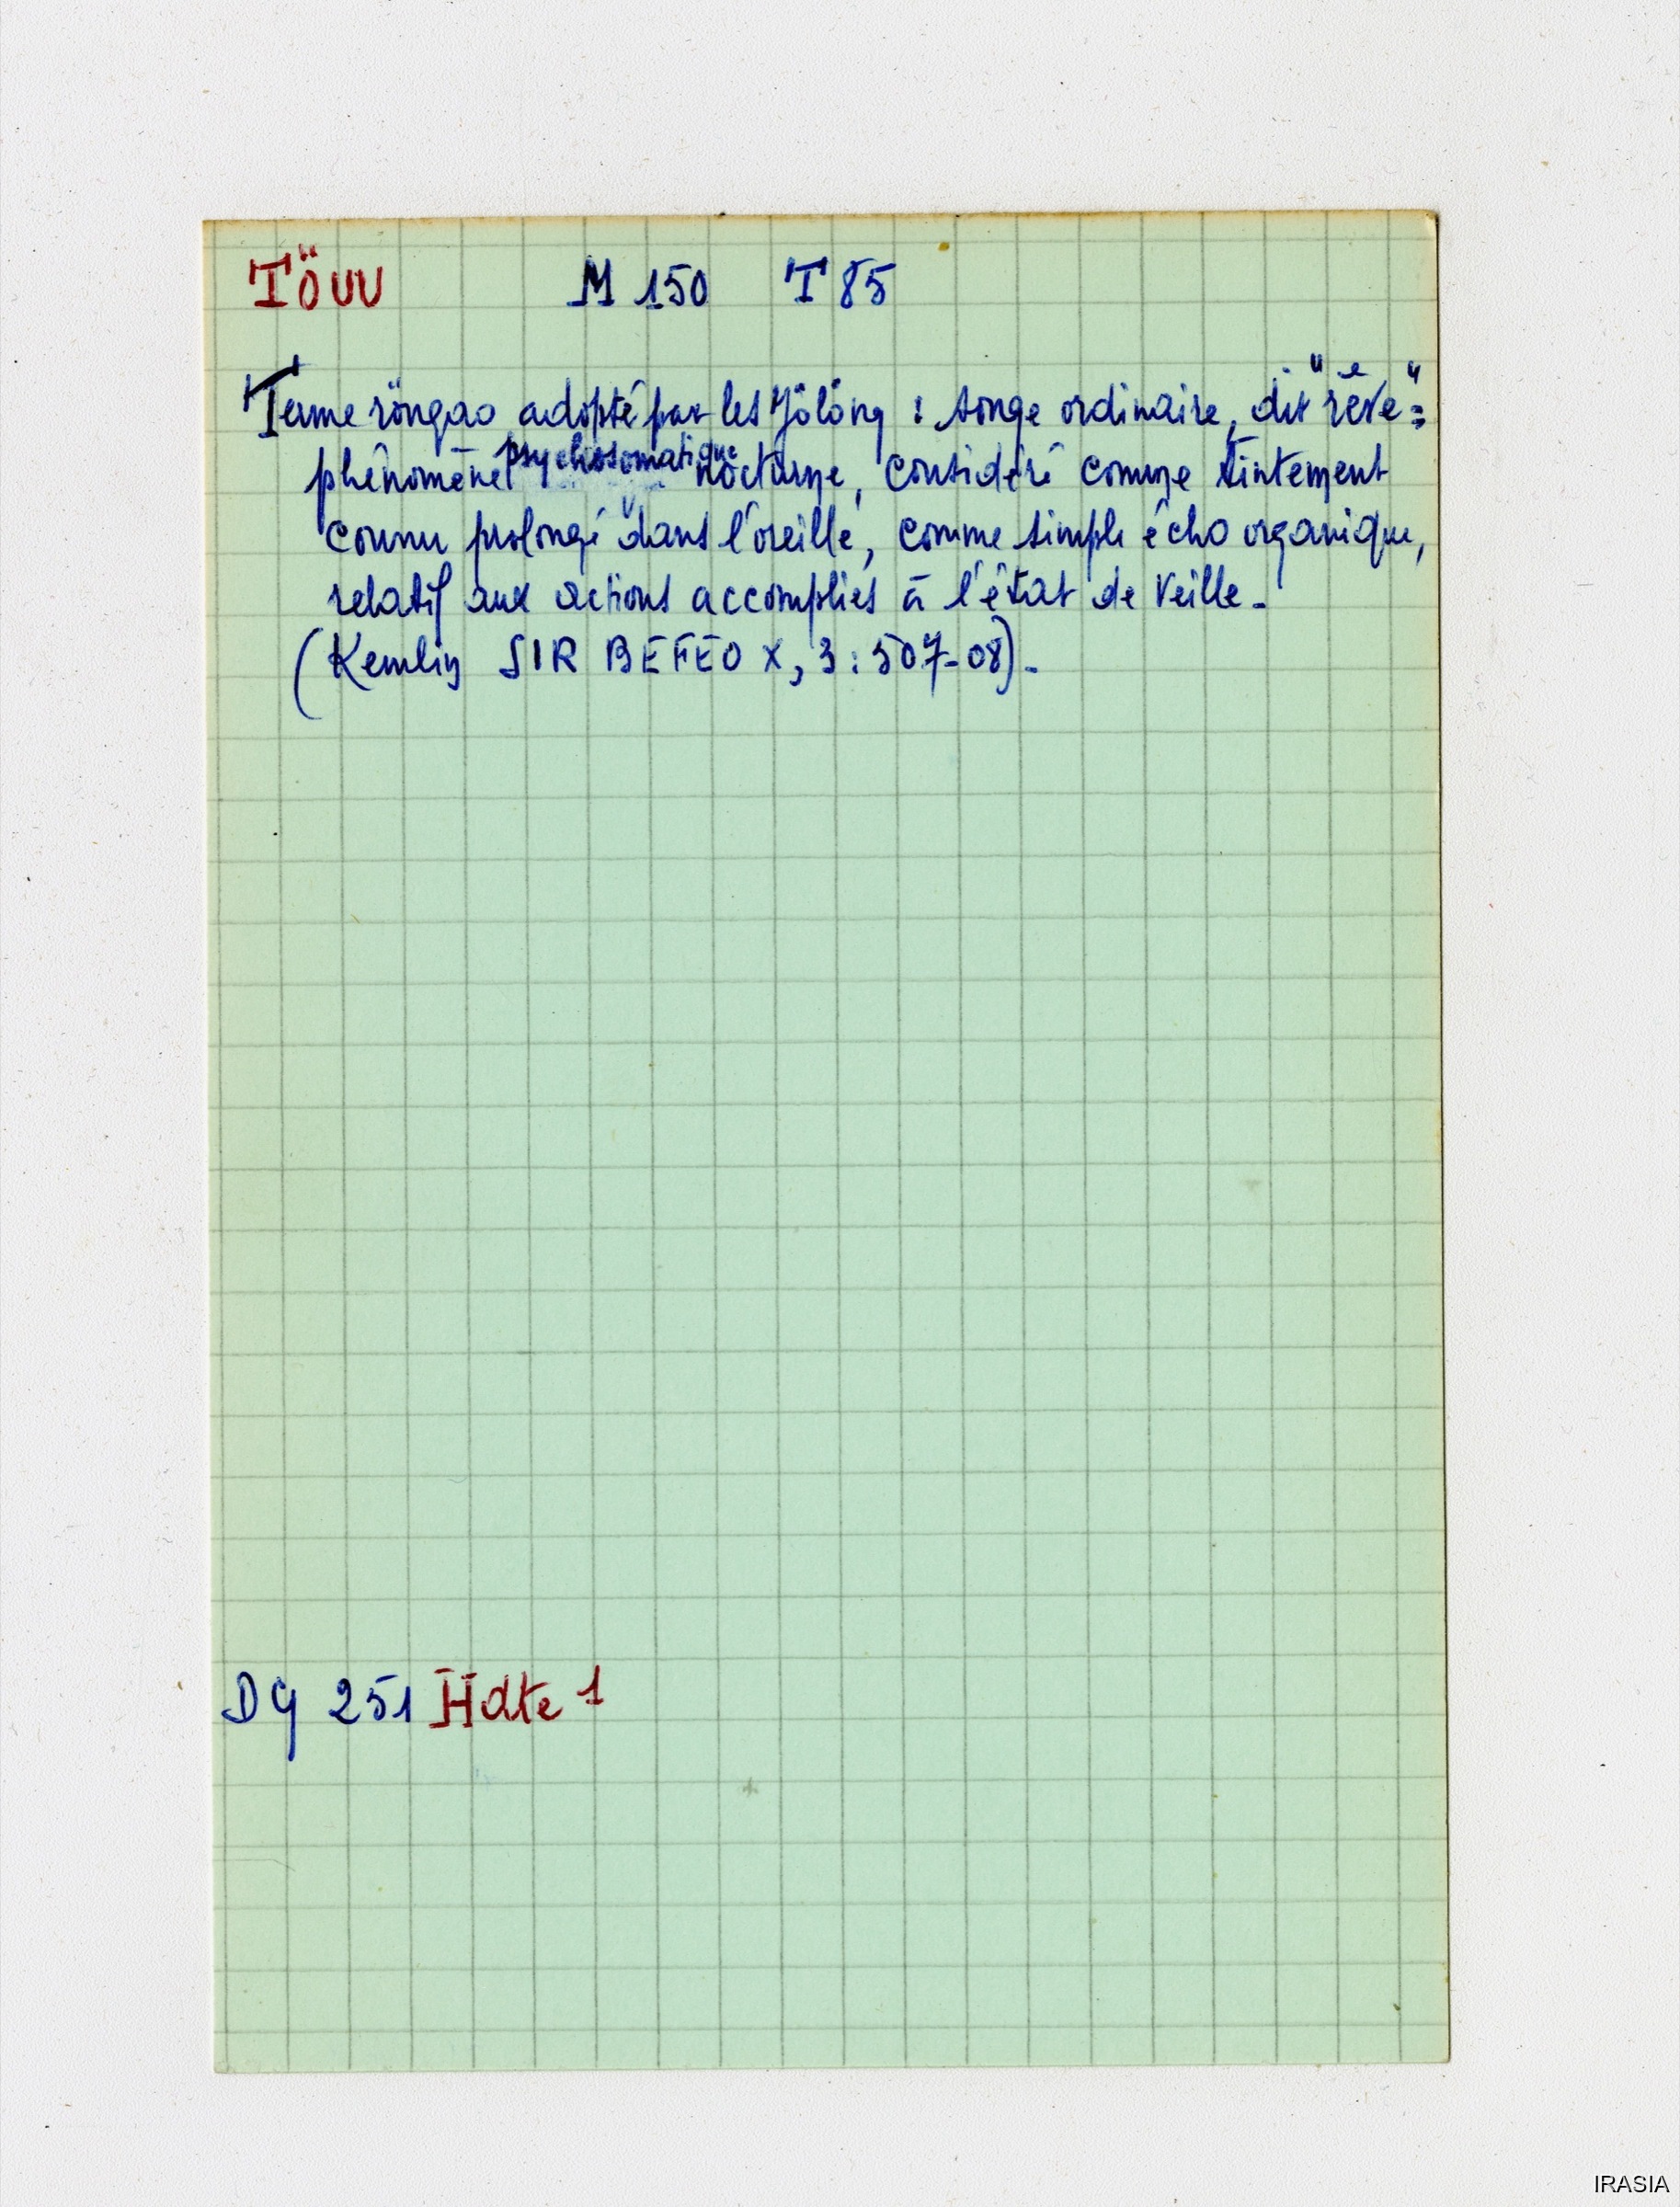 TÖUU M 150 T 85
Terme röngao adopté par les Jölöng : songe ordinaire, dit "rêve" =
phénomène psychosomatique nocturne, considéré comme tintement
connu prolongé dans l'oreille, comme simple écho organique,
relatif aux actions accomplies à l'état de veille.
(Kemlin SIR BEFEO X, 3 : 507-08).
DG 251 Hdte 1
IRASIA